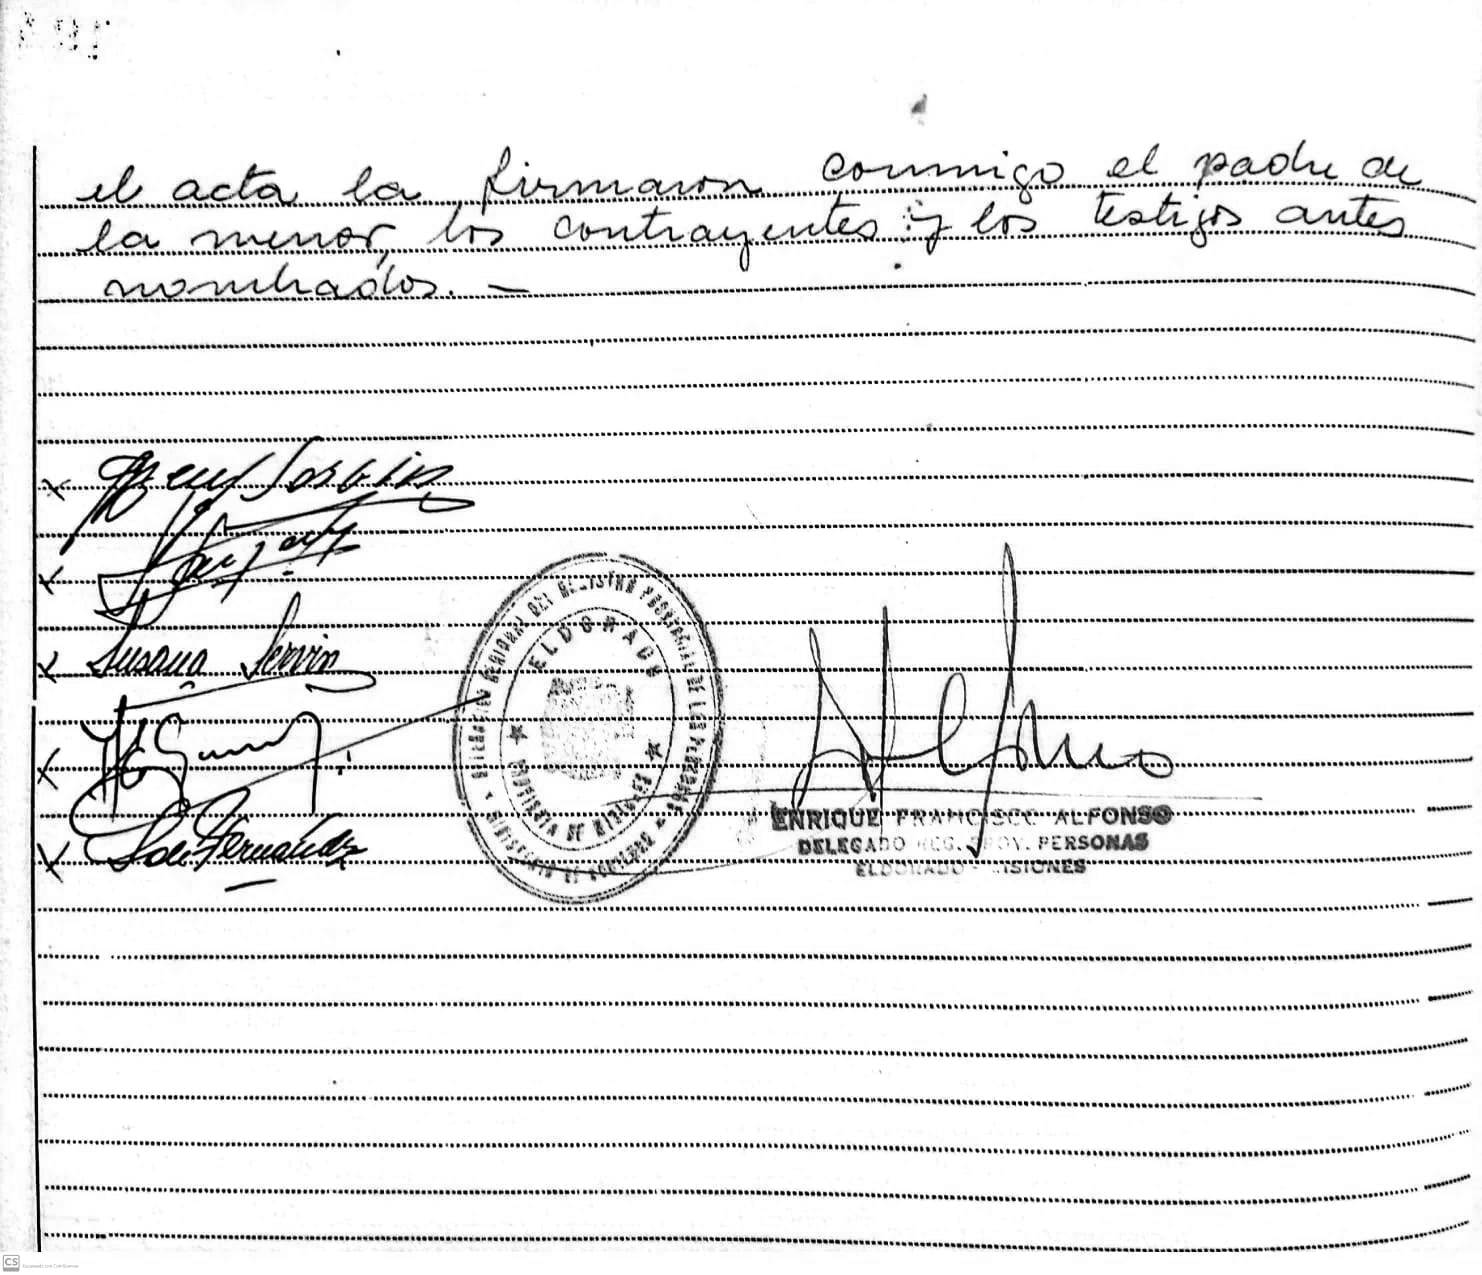 el acta la firmaron conmigo el padre de
la menor, los contrayentes y los testigos antes
nombrados. —
Susana Servin
Fernández
DELEGACION REGIONAL DEL REGISTRO PROVINCIAL DE LAS PERSONAS
MINISTERIO DE GOBIERNO
ELDORADO
PROVINCIA DE MISIONES
Alfonso
ENRIQUE FRANCISCO ALFONSO
DELEGADO REG. PROV. PERSONAS
ELDORADO - MISIONES
CS